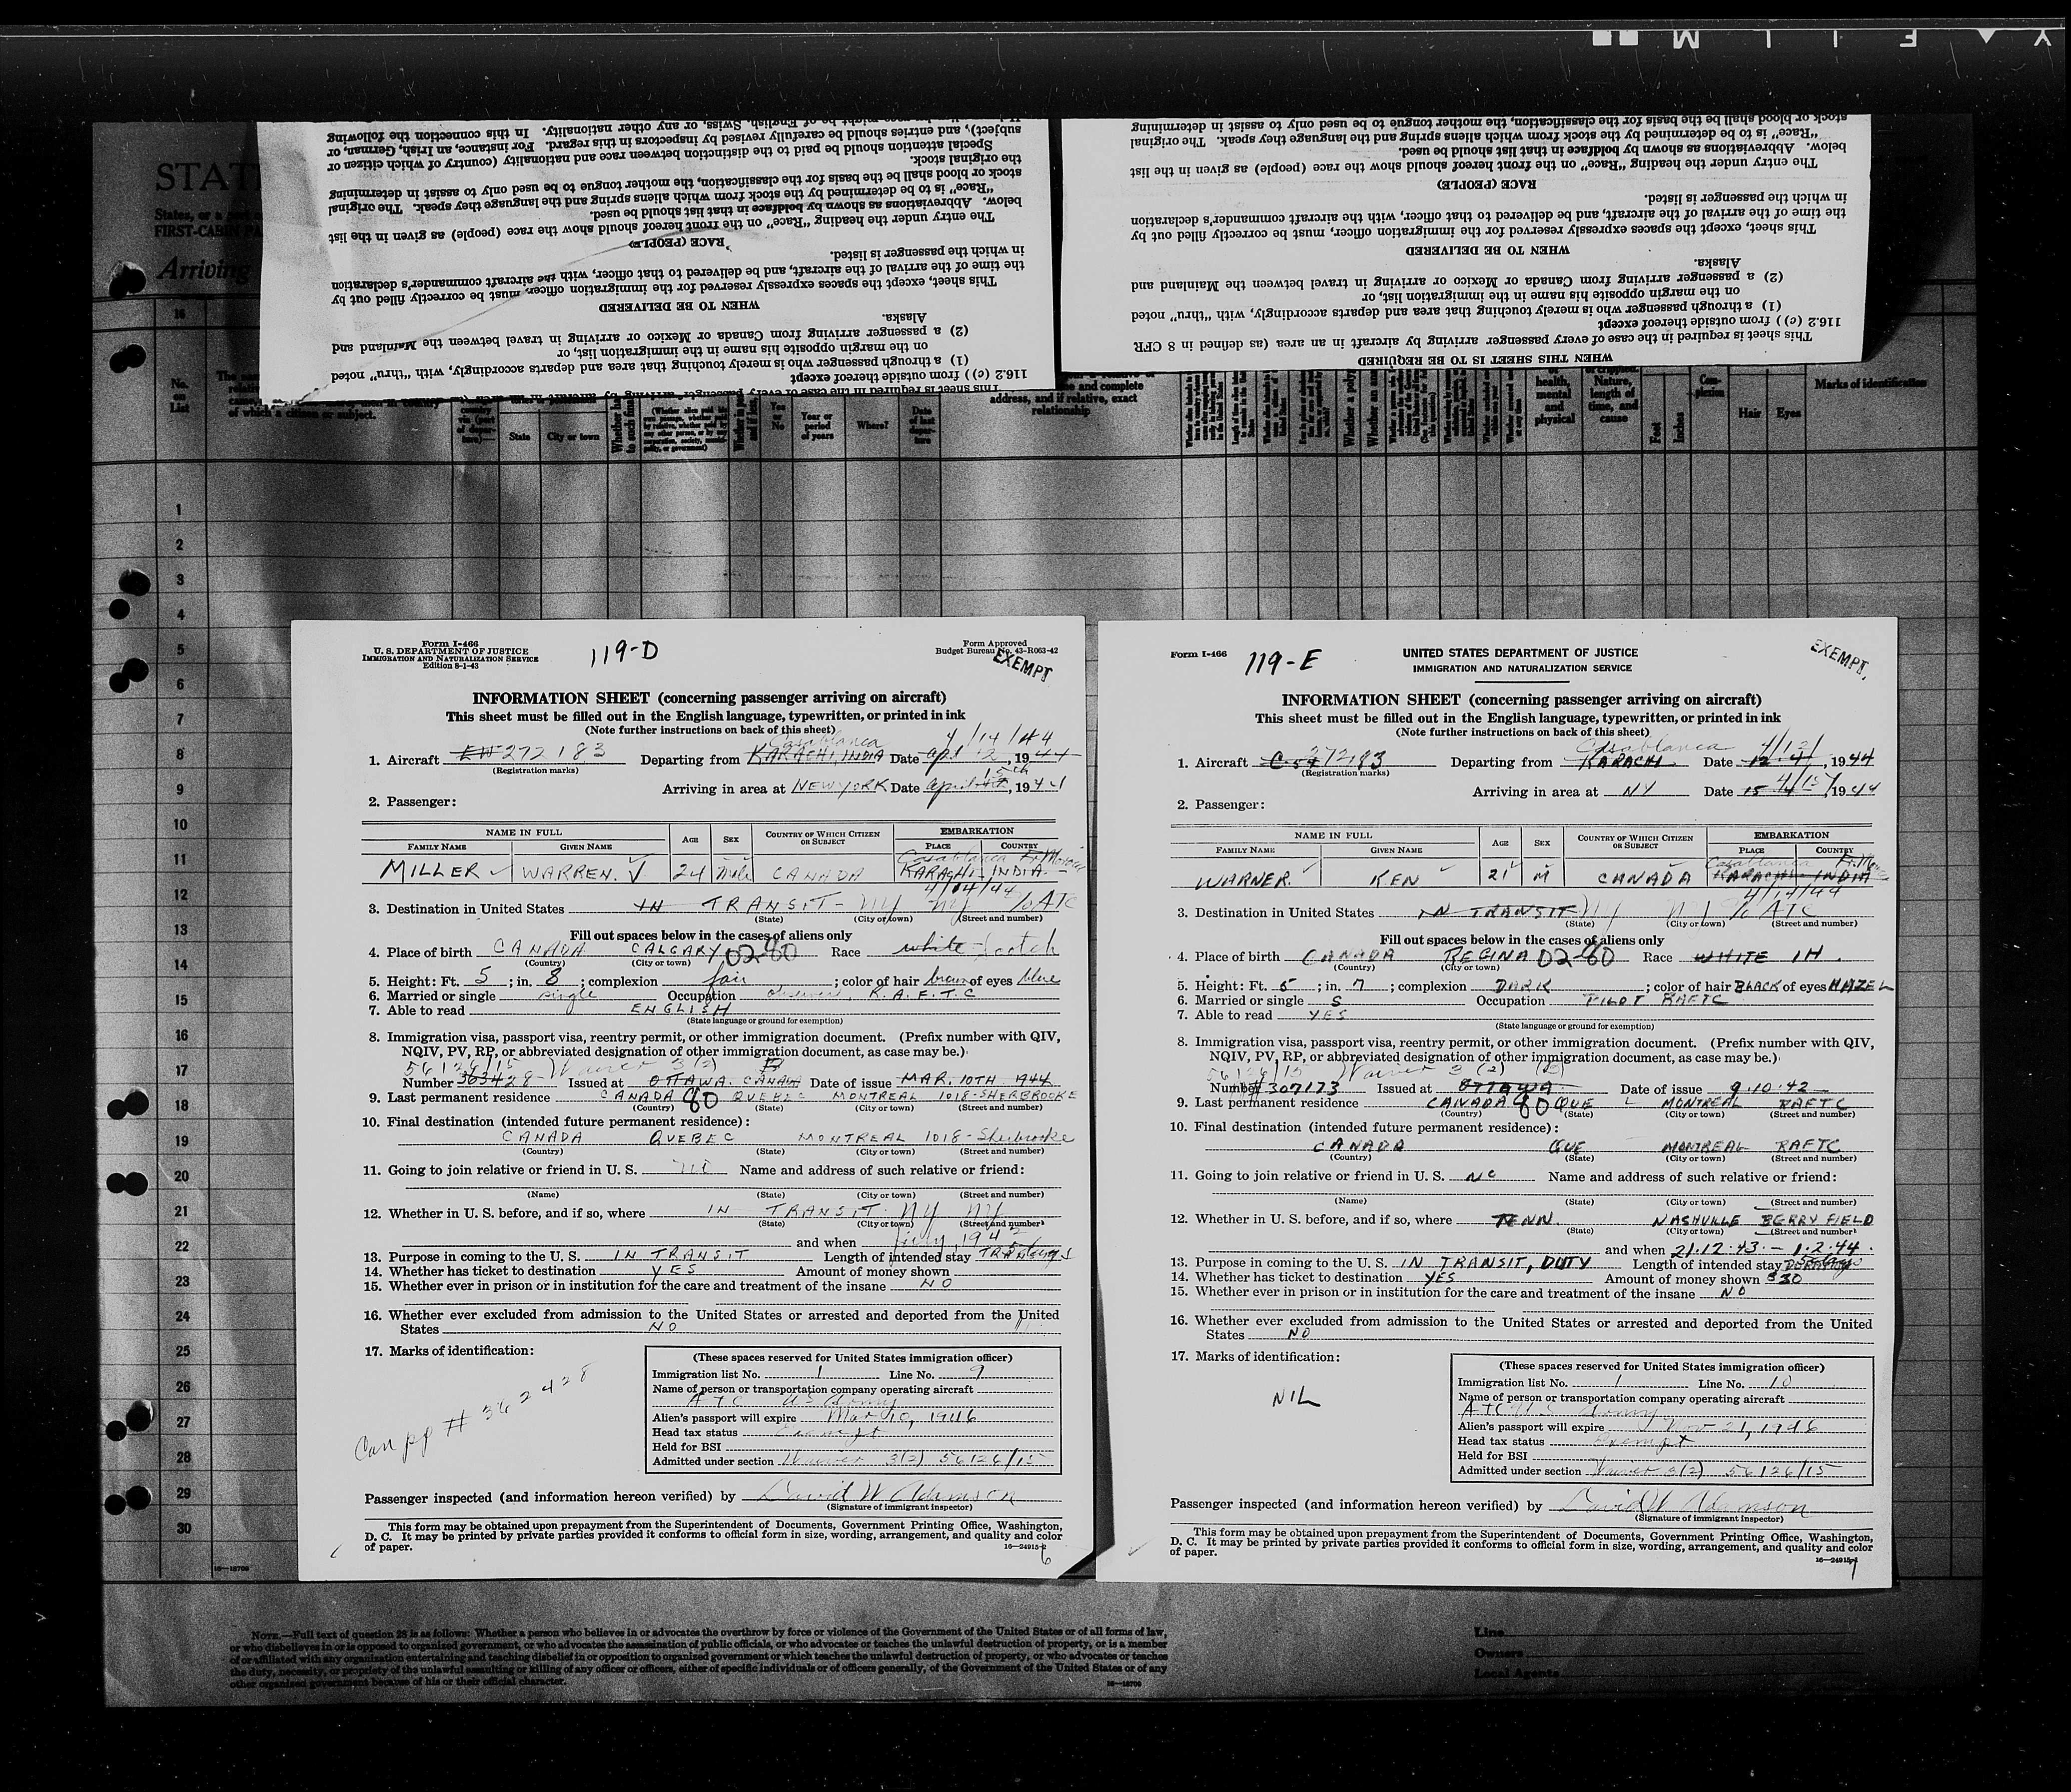 Y FILM
STAT
States, or a
FIRST-CABIN PA
Arriving
subject), and entries should be carefully revised by inspectors in this regard. For instance, an Irish, German, or
Special attention should be paid to the distinction between race and nationality (country of which citizen or
the original stock.
stock or blood shall be the basis for the classification, the mother tongue to be used only to assist in determining
"Race" is to be determined by the stock from which aliens spring and the language they speak. The original
below. Abbreviations as shown by boldface in that list should be used.
The entry under the heading "Race" on the front hereof should show the race (people) as given in the list
RACE (PEOPLE)
in which the passenger is listed.
the time of the arrival of the aircraft, and be delivered to that officer, with the aircraft commander's declaration
This sheet, except the spaces expressly reserved for the immigration officer, must be correctly filled out by
WHEN TO BE DELIVERED
Alaska.
(2) a passenger arriving from Canada or Mexico or arriving in travel between the Mainland and
on the margin opposite his name in the immigration list, or
(1) a through passenger who is merely touching that area and departs accordingly, with "thru" noted
116.2 (c)) from outside thereof except
This sheet is required in the case of every passenger arriving by aircraft in an area
stock or blood shall be the basis for the classification, the mother tongue to be used only to assist in determining
"Race" is to be determined by the stock from which aliens spring and the language they speak. The original
below. Abbreviations as shown by boldface in that list should be used.
The entry under the heading "Race" on the front hereof should show the race (people) as given in the list
RACE (PEOPLE)
in which the passenger is listed.
the time of the arrival of the aircraft, and be delivered to that officer, with the aircraft commander's declaration
This sheet, except the spaces expressly reserved for the immigration officer, must be correctly filled out by
WHEN TO BE DELIVERED
Alaska.
(2) a passenger arriving from Canada or Mexico or arriving in travel between the Mainland and
on the margin opposite his name in the immigration list, or
(1) a through passenger who is merely touching that area and departs accordingly, with "thru" noted
116.2 (c)) from outside thereof except
This sheet is required in the case of every passenger arriving by aircraft in an area (as defined in 8 CFR
WHEN THIS SHEET IS TO BE REQUIRED
No. on List
of which a citizen or subject.
State City or town
Yes or No
Year or period of years
Where?
Date of last departure
and complete address, and if relative, exact relationship
health, mental and physical
Nature, length of time, and cause
Feet Inches
Complexion
Hair Eyes
Marks of identification
1
2
3
4
5
6
7
8
9
10
11
12
13
14
15
16
17
18
19
20
21
22
23
24
25
26
27
28
29
30
Form I-466
U. S. DEPARTMENT OF JUSTICE
IMMIGRATION AND NATURALIZATION SERVICE
Edition 8-1-43
119-D
Form Approved
Budget Bureau No. 43-R063-42
EXEMPT
INFORMATION SHEET (concerning passenger arriving on aircraft)
This sheet must be filled out in the English language, typewritten, or printed in ink
(Note further instructions on back of this sheet)
Casablanca 4/14/44
1. Aircraft 272183 Departing from KARACHI, INDIA Date Apl 12, 1944
(Registration marks)
15th
Arriving in area at NEW YORK Date April, 1944
2. Passenger:
NAME IN FULL AGE SEX COUNTRY OF WHICH CITIZEN OR SUBJECT EMBARKATION
FAMILY NAME GIVEN NAME PLACE COUNTRY
Casablanca Fr. Morocco
MILLER WARREN. J 24 Male CANADA KARACHI INDIA
4/14/44
3. Destination in United States IN TRANSIT - NY NY % ATC
(State) (City or town) (Street and number)
Fill out spaces below in the cases of aliens only
4. Place of birth CANADA CALGARY 02-80 Race white Scotch
(Country) (City or town)
5. Height: Ft. 5; in. 8; complexion fair; color of hair brown of eyes blue
6. Married or single single Occupation observer R.A.F.T.C
7. Able to read ENGLISH
(State language or ground for exemption)
8. Immigration visa, passport visa, reentry permit, or other immigration document. (Prefix number with QIV,
NQIV, PV, RP, or abbreviated designation of other immigration document, as case may be.)
56126/15 Waiver 3(2)
Number 363428 Issued at OTTAWA. CANADA Date of issue MAR. 10TH 1944
9. Last permanent residence CANADA 80 QUEBEC MONTREAL 1018-SHERBROOKE
(Country) (State) (City or town) (Street and number)
10. Final destination (intended future permanent residence):
CANADA QUEBEC MONTREAL 1018-Sherbrooke
(Country) (State) (City or town) (Street and number)
11. Going to join relative or friend in U. S. nil Name and address of such relative or friend:
(Name) (State) (City or town) (Street and number)
12. Whether in U. S. before, and if so, where IN TRANSIT NY NY
(State) (City or town) (Street and number)
and when July, 1942
13. Purpose in coming to the U. S. IN TRANSIT Length of intended stay
14. Whether has ticket to destination YES Amount of money shown
15. Whether ever in prison or in institution for the care and treatment of the insane NO
16. Whether ever excluded from admission to the United States or arrested and deported from the United
States NO
17. Marks of identification:
Can pp # 362428
(These spaces reserved for United States immigration officer)
Immigration list No. 1 Line No. 9
Name of person or transportation company operating aircraft
ATC US Army
Alien's passport will expire Mar 10, 1946
Head tax status Exempt
Held for BSI
Admitted under section Waiver 3(2) 56126/15
Passenger inspected (and information hereon verified) by David W Adamson
(Signature of immigrant inspector)
This form may be obtained upon prepayment from the Superintendent of Documents, Government Printing Office, Washington,
D. C. It may be printed by private parties provided it conforms to official form in size, wording, arrangement, and quality and color
of paper.
16—24915-1
6
Form I-466
119-E
UNITED STATES DEPARTMENT OF JUSTICE
IMMIGRATION AND NATURALIZATION SERVICE
EXEMPT.
INFORMATION SHEET (concerning passenger arriving on aircraft)
This sheet must be filled out in the English language, typewritten, or printed in ink
(Note further instructions on back of this sheet)
Casablanca
1. Aircraft C 54 272183 Departing from KARACHI Date 12.4, 1944
(Registration marks)
4/15/
Arriving in area at NY Date 15 1944
2. Passenger:
NAME IN FULL AGE SEX COUNTRY OF WHICH CITIZEN OR SUBJECT EMBARKATION
FAMILY NAME GIVEN NAME PLACE COUNTRY
Casablanca
WARNER. KEN 21 M CANADA KARACHI INDIA
4/14/44
3. Destination in United States IN TRANSIT NY NY % ATC
(State) (City or town) (Street and number)
Fill out spaces below in the cases of aliens only
4. Place of birth CANADA REGINA 02-80 Race WHITE IH.
(Country) (City or town)
5. Height: Ft. 5; in. 7; complexion DARK; color of hair BLACK of eyes HAZEL
6. Married or single S Occupation PILOT RAFTC
7. Able to read YES
(State language or ground for exemption)
8. Immigration visa, passport visa, reentry permit, or other immigration document. (Prefix number with QIV,
NQIV, PV, RP, or abbreviated designation of other immigration document, as case may be.)
56126/15 Waiver 3 (2)
Number # 307173 Issued at OTTAWA Date of issue 9.10.42
9. Last permanent residence CANADA 80 QUE MONTREAL RAFTC
(Country) (State) (City or town) (Street and number)
10. Final destination (intended future permanent residence):
CANADA QUE MONTREAL RAFTC
(Country) (State) (City or town) (Street and number)
11. Going to join relative or friend in U. S. NO Name and address of such relative or friend:
(Name) (State) (City or town) (Street and number)
12. Whether in U. S. before, and if so, where TENN. NASHVILLE BERRY FIELD
(State) (City or town) (Street and number)
and when 21.12.43. — 1.2.44.
13. Purpose in coming to the U. S. IN TRANSIT, DUTY Length of intended stay
14. Whether has ticket to destination YES Amount of money shown $30
15. Whether ever in prison or in institution for the care and treatment of the insane NO
16. Whether ever excluded from admission to the United States or arrested and deported from the United
States NO
17. Marks of identification:
NIL
(These spaces reserved for United States immigration officer)
Immigration list No. 1 Line No. 10
Name of person or transportation company operating aircraft
ATC US Army
Alien's passport will expire Nov 21, 1946
Head tax status Exempt
Held for BSI
Admitted under section Waiver 3(2) 56126/15
Passenger inspected (and information hereon verified) by David W Adamson
(Signature of immigrant inspector)
This form may be obtained upon prepayment from the Superintendent of Documents, Government Printing Office, Washington,
D. C. It may be printed by private parties provided it conforms to official form in size, wording, arrangement, and quality and color
of paper.
16—24915-1
7
16—18709
NOTE.—Full text of question 28 is as follows: Whether a person who believes in or advocates the overthrow by force or violence of the Government of the United States or of all forms of law,
or who disbelieves in or is opposed to organized government, or who advocates the assassination of public officials, or who advocates or teaches the unlawful destruction of property, or is a member
of or affiliated with any organization entertaining and teaching disbelief in or opposition to organized government or which teaches the unlawful destruction of property, or who advocates or teaches
the duty, necessity, or propriety of the unlawful assaulting or killing of any officer or officers, either of specific individuals or of officers generally, of the Government of the United States or of any
other organized government because of his or their official character.
16—18709
Line
Owners
Local Agents